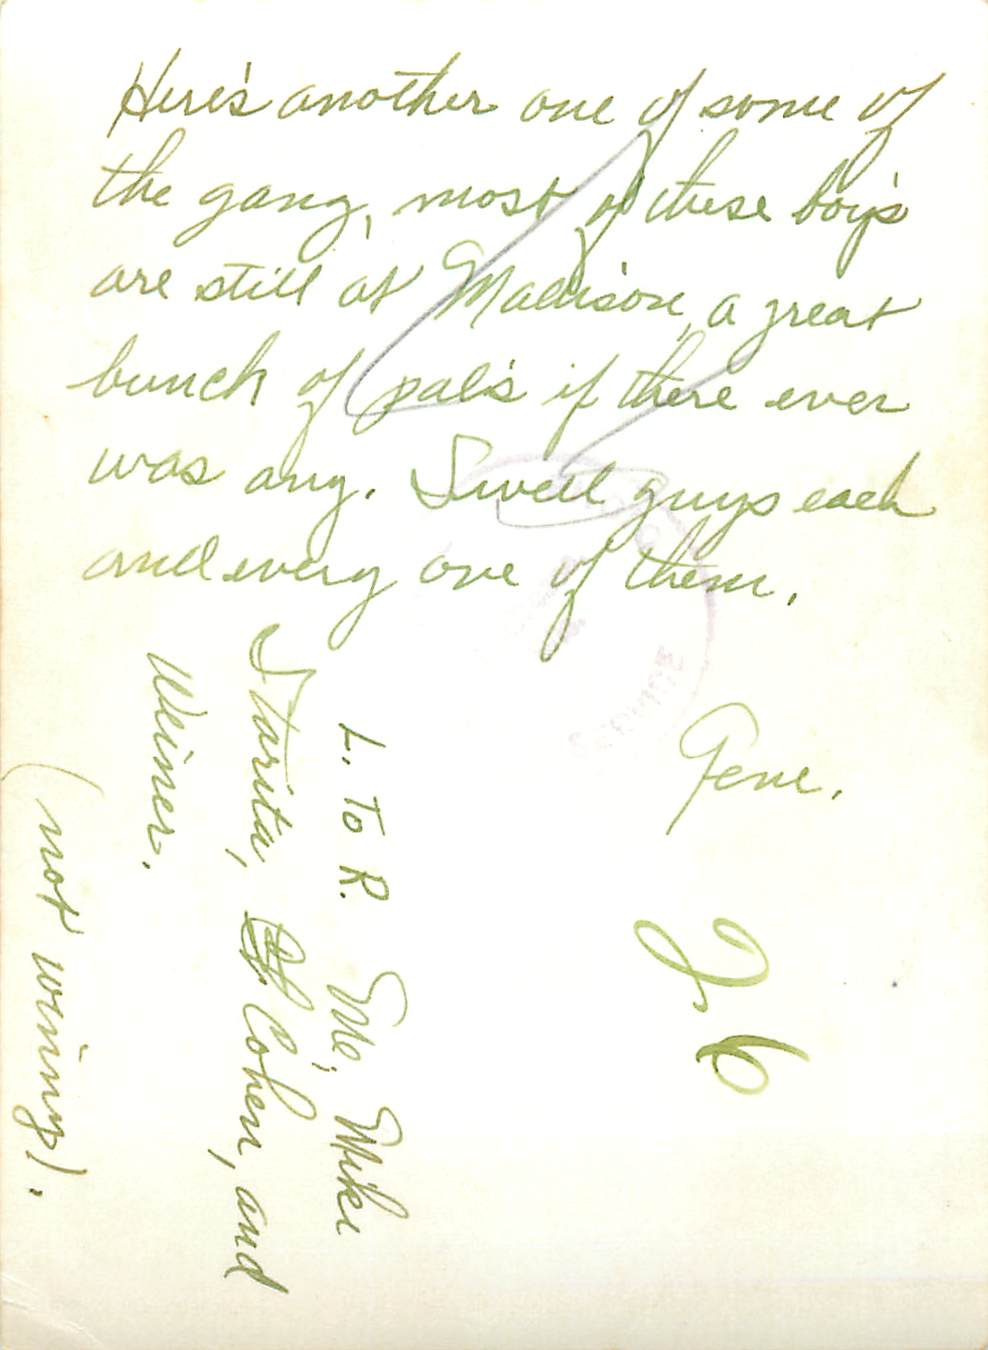 Here's another one of some of
the gang, most of these boy's
are still at Madison, a great
bunch of pal's if there ever
was any. Swell guys each
and every one of them.
Gene.
L. To R. Me, Mike
Starita, Cohen, and
Weiner.
(not winny).
26
SERVICE